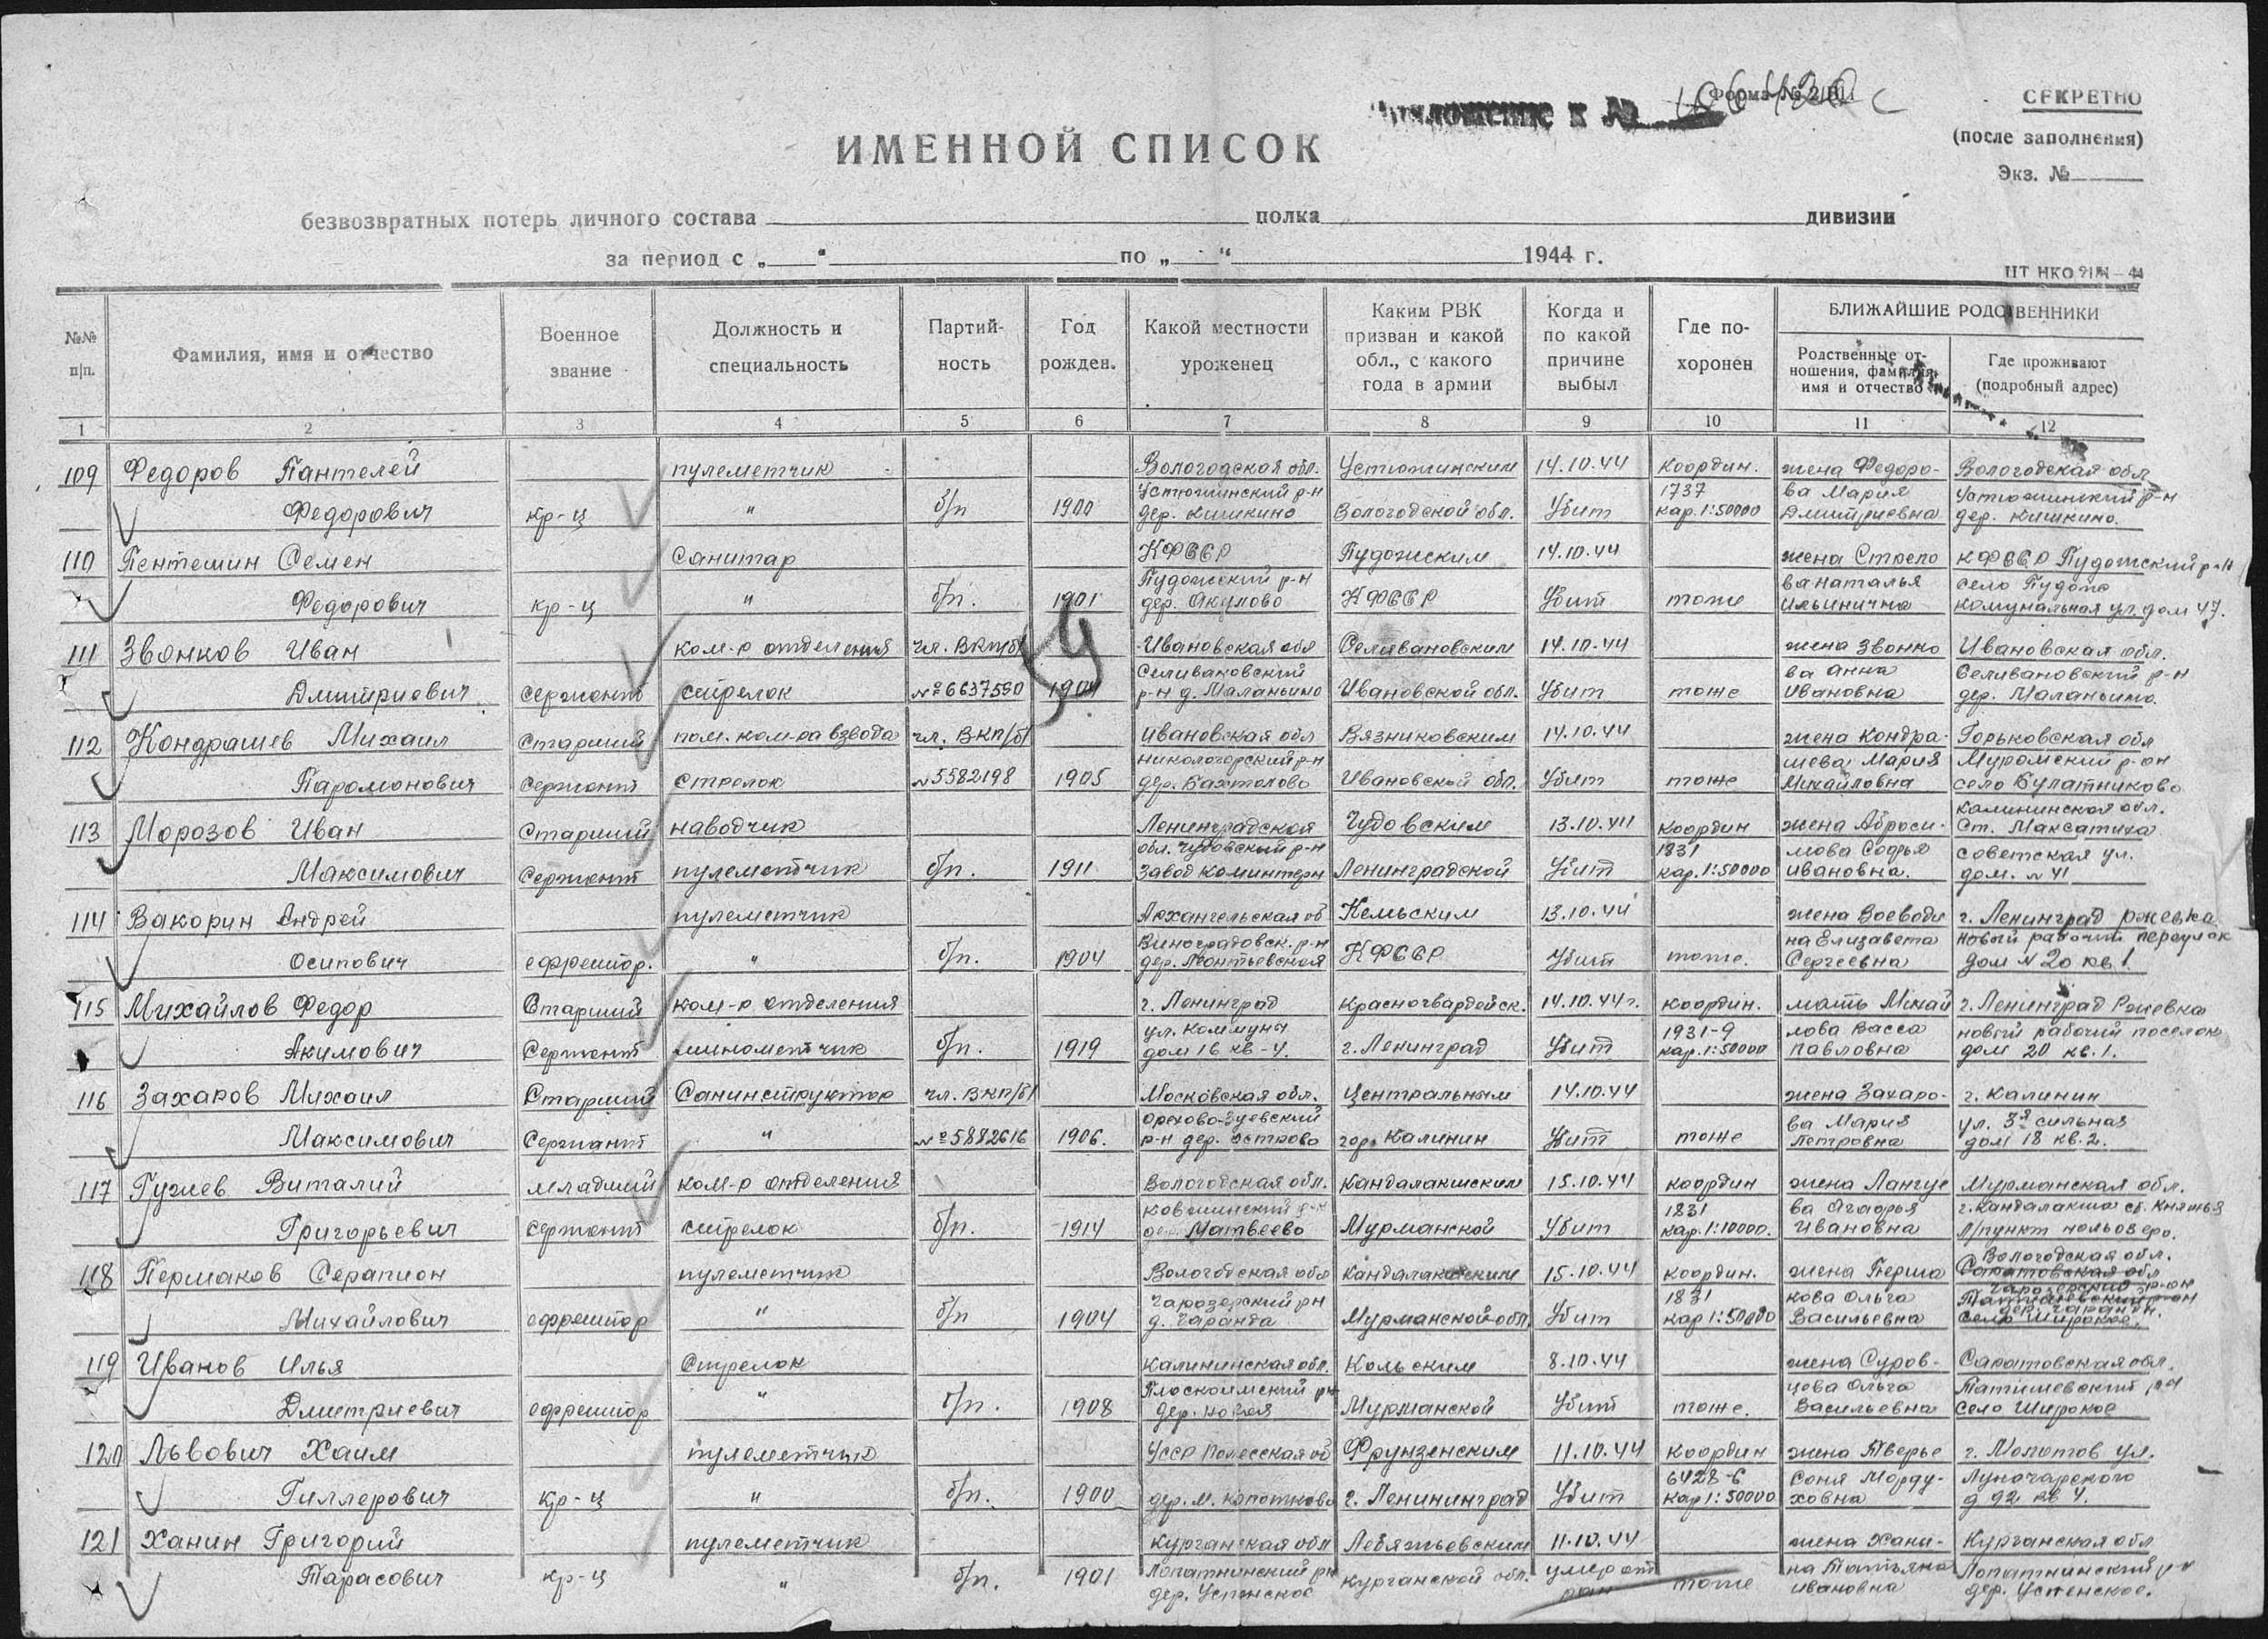 Приложение к №
Форма № 2/БП
СЕКРЕТНО
(после заполнения)
Экз. №
ИМЕННОЙ СПИСОК
безвозвратных потерь личного состава полка дивизии
за период с „ “ по „ “ 1944 г.
№№ п/п.
Фамилия, имя и отчество
Военное звание
Должность и специальность
Партий-ность
Год рожден.
Какой местности уроженец
Каким РВК призван и какой обл., с какого года в армии
Когда и по какой причине выбыл
Где по-хоронен
БЛИЖАЙШИЕ РОДСТВЕННИКИ
Родственные от-ношения, фамилия, имя и отчество
Где проживают (подробный адрес)
1 2 3 4 5 6 7 8 9 10 11 12
109 Федоров Пантелей пулеметчик Вологодская обл. Устюжинским 14.10.44 Координ. жена Федоро- Вологодская обл.
Устюжинский р-н 1737 ва Мария Устюжинский р-н
Федорович кр-ц " б/п 1900 дер. Кишкино Вологодской обл. Убит кар. 1:50000 Дмитриевна дер. Кишкино.
110 Пентешин Семен Санитар КФССР Пудожским 14.10.44 жена Стрепо КФССР Пудожский р-н
Пудожский р-н ва Наталья село Пудож
Федорович кр-ц " б/п. 1901 дер. Акулово КФССР Убит тоже Ильинична комунальная ул. дом 47.
111 Звонков Иван ком-р отделения чл. ВКП/б/ Ивановская обл Селивановским 14.10.44 жена Звонко Ивановская обл.
Селивановский ва Анна Селивановский р-н
Дмитриевич сержант стрелок №6637590 1904 р-н д. Маланьино Ивановской обл. Убит тоже Ивановна дер. Маланьино.
112 Кондрашев Михаил Старший пом. ком-ра взвода чл. ВКП/б/ Ивановская обл Вязниковским 14.10.44 жена Кондра- Горьковская обл
Никологорский р-н шева Мария Муромский р-он
Парамонович Сержант стрелок №5582198 1905 дер. Бахтолово Ивановской обл. Убит тоже Михайловна село Булатниково
Калининская обл.
113 Морозов Иван Старший наводчик Ленинградской Чудовским 13.10.44 Координ жена Аброси- Ст. Максатиха
обл. Чудовский р-н 1831 мова Софья советская ул.
Максимович Сержант пулеметчик б/п. 1911 завод Коминтерн Ленинградской Убит кар. 1:50000 Ивановна. дом. № 41
114 Вакорин Андрей пулеметчик Архангельская об Кемьским 13.10.44 жена Воеводи г. Ленинград Ржевка
Виноградовск. р-н на Елизавета новый рабочий переулок
Осипович ефрейтор. " б/п. 1904 дер. Леонтьевская КФССР Убит тоже. Сергеевна дом № 20 кв 1.
115 Михайлов Федор Старший ком-р отделения г. Ленинград Красногвардейск. 14.10.44 г. координ. мать Михай г. Ленинград Ржевка
ул. Коммуны 1931-9 лова Васса новый рабочий поселок
Акимович Сержант минометчик б/п. 1919 дом 16 кв-4. г. Ленинград Убит кар. 1:50000 Павловна дом 20 кв. 1.
116 Захаров Михаил Старший Санинструктор чл. ВКП/б/ Московская обл. Центральным 14.10.44 жена Захаро- г. Калинин
Орехово-Зуевский ва Мария ул. 3я сильная
Максимович Сержант " №5882616 1906. р-н дер. Острово гор. Калинин Убит тоже Петровна дом 18 кв. 2.
117 Гужев Виталий младший ком-р отделения Вологодская обл. Кандалакшским 15.10.44 координ жена Лангуе Мурманская обл.
Ковжинский р-н 1831 ва Агафья г. Кандалакша ст. Княжья
Григорьевич сержант стрелок б/п. 1914 дер. Матвеево Мурманской Убит кар. 1:10000. Ивановна Л/пункт Нольозеро.
Вологодская обл.
118 Пермаков Серапион пулеметчик Вологодская обл Кандалакшским 15.10.44 координ. жена Перма Саратовская обл
Чарозерский р-он
Чарозерский рн 1831 кова Ольга Татищевский р-он
дер. Чаранда.
Михайлович ефрейтор " б/п 1904 д. Чаранда Мурманской обл. Убит кар 1:50000 Васильевна село Широкое.
119 Иванов Илья Стрелок Калининская обл. Кольским 8.10.44 жена Суров- Саратовская обл.
Плоскошский рн цева Ольга Татищевский р-н
Дмитриевич ефрейтор " б/п. 1908 дер. Новая Мурманской Убит тоже. Васильевна село Широкое
120 Львович Хаим пулеметчик УССР Полесская об Фрунзенским 11.10.44 координ жена Тверье г. Молотов ул.
6428-6 Соня Морду- Луначарского
Гиллерович кр-ц " б/п. 1900 дер. М. Капоткова г. Ленининград Убит кар 1:50000 ховна д 92 кв 4.
121 Ханин Григорий пулеметчик Курганская обл Лебяжьевским 11.10.44 жена Хани- Курганская обл
Лопатнинский рн умер от на Татьяна Лопатнинский р-н
Тарасович кр-ц " б/п. 1901 дер. Успенское Курганской обл. ран тоже Ивановна дер. Успенское.